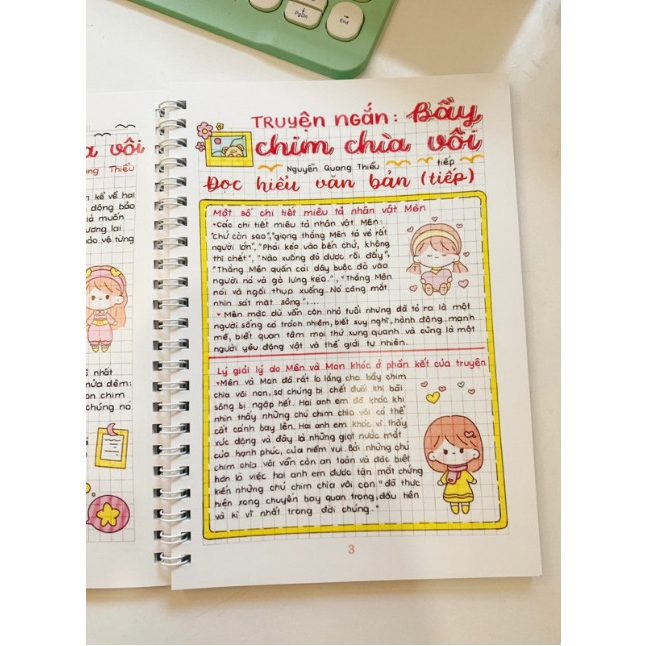 PgDn
End
a vôi
Quang Thiều
kể về hai
đông bão
à muốn
ương lai
ảo vệ từng
nhất
nửa đêm:
on chim
chúng nó
Truyện ngắn: Bầy
chim chìa vôi
Nguyễn Quang Thiều
tiếp
Đọc hiểu văn bản (tiếp)
Một số chi tiết miêu tả nhân vật Mên
*Các chi tiết miêu tả nhân vật Mên:
"Chứ còn sao", "giọng thằng Mên tỏ vẻ rất
người lớn", "Phải kéo vào bến chứ, không
thì chết", "Nào xuống đò được rồi đấy",
"Thằng Mên quấn cái dây buộc đò vào
người nó và gò lưng kéo", "Thằng Mên
nói và ngồi thụp xuống. Nó căng mắt
nhìn sát mặt sông",...
* Mên mặc dù vẫn còn nhỏ tuổi nhưng đã tỏ ra là một
người sống có trách nhiệm, biết suy nghĩ, hành động mạnh
mẽ, biết quan tâm mọi thứ xung quanh và cũng là một
người yêu động vật và thế giới tự nhiên.
Lý giải lý do Mên và Mon khóc ở phần kết của truyện
*Mên và Mon đã rất lo lắng cho bầy chim
chìa vôi non, sợ chúng bị chết đuối khi bãi
sông bị ngập hết. Hai anh em đã khóc khi
nhìn thấy những chú chim chìa vôi có thể
cất cánh bay lên. Hai anh em khóc vì thấy
xúc động và đây là những giọt nước mắt
của hạnh phúc, của niềm vui. Bởi những chú
chim chìa vôi vẫn còn an toàn và đặc biệt
hơn là việc hai anh em được tận mắt chứng
kiến những chú chim chìa vôi con "đã thực
hiện xong chuyến bay quan trọng, đầu tiên
và kì vĩ nhất trong đời chúng."
3